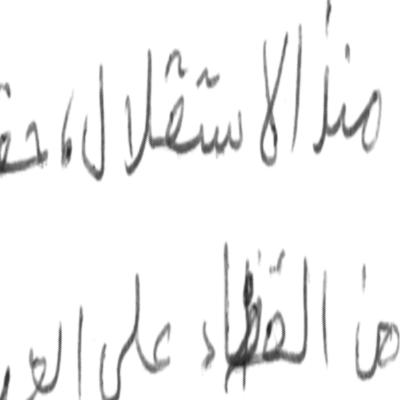 منذ الاستقلال، حق
من القضاء على الع